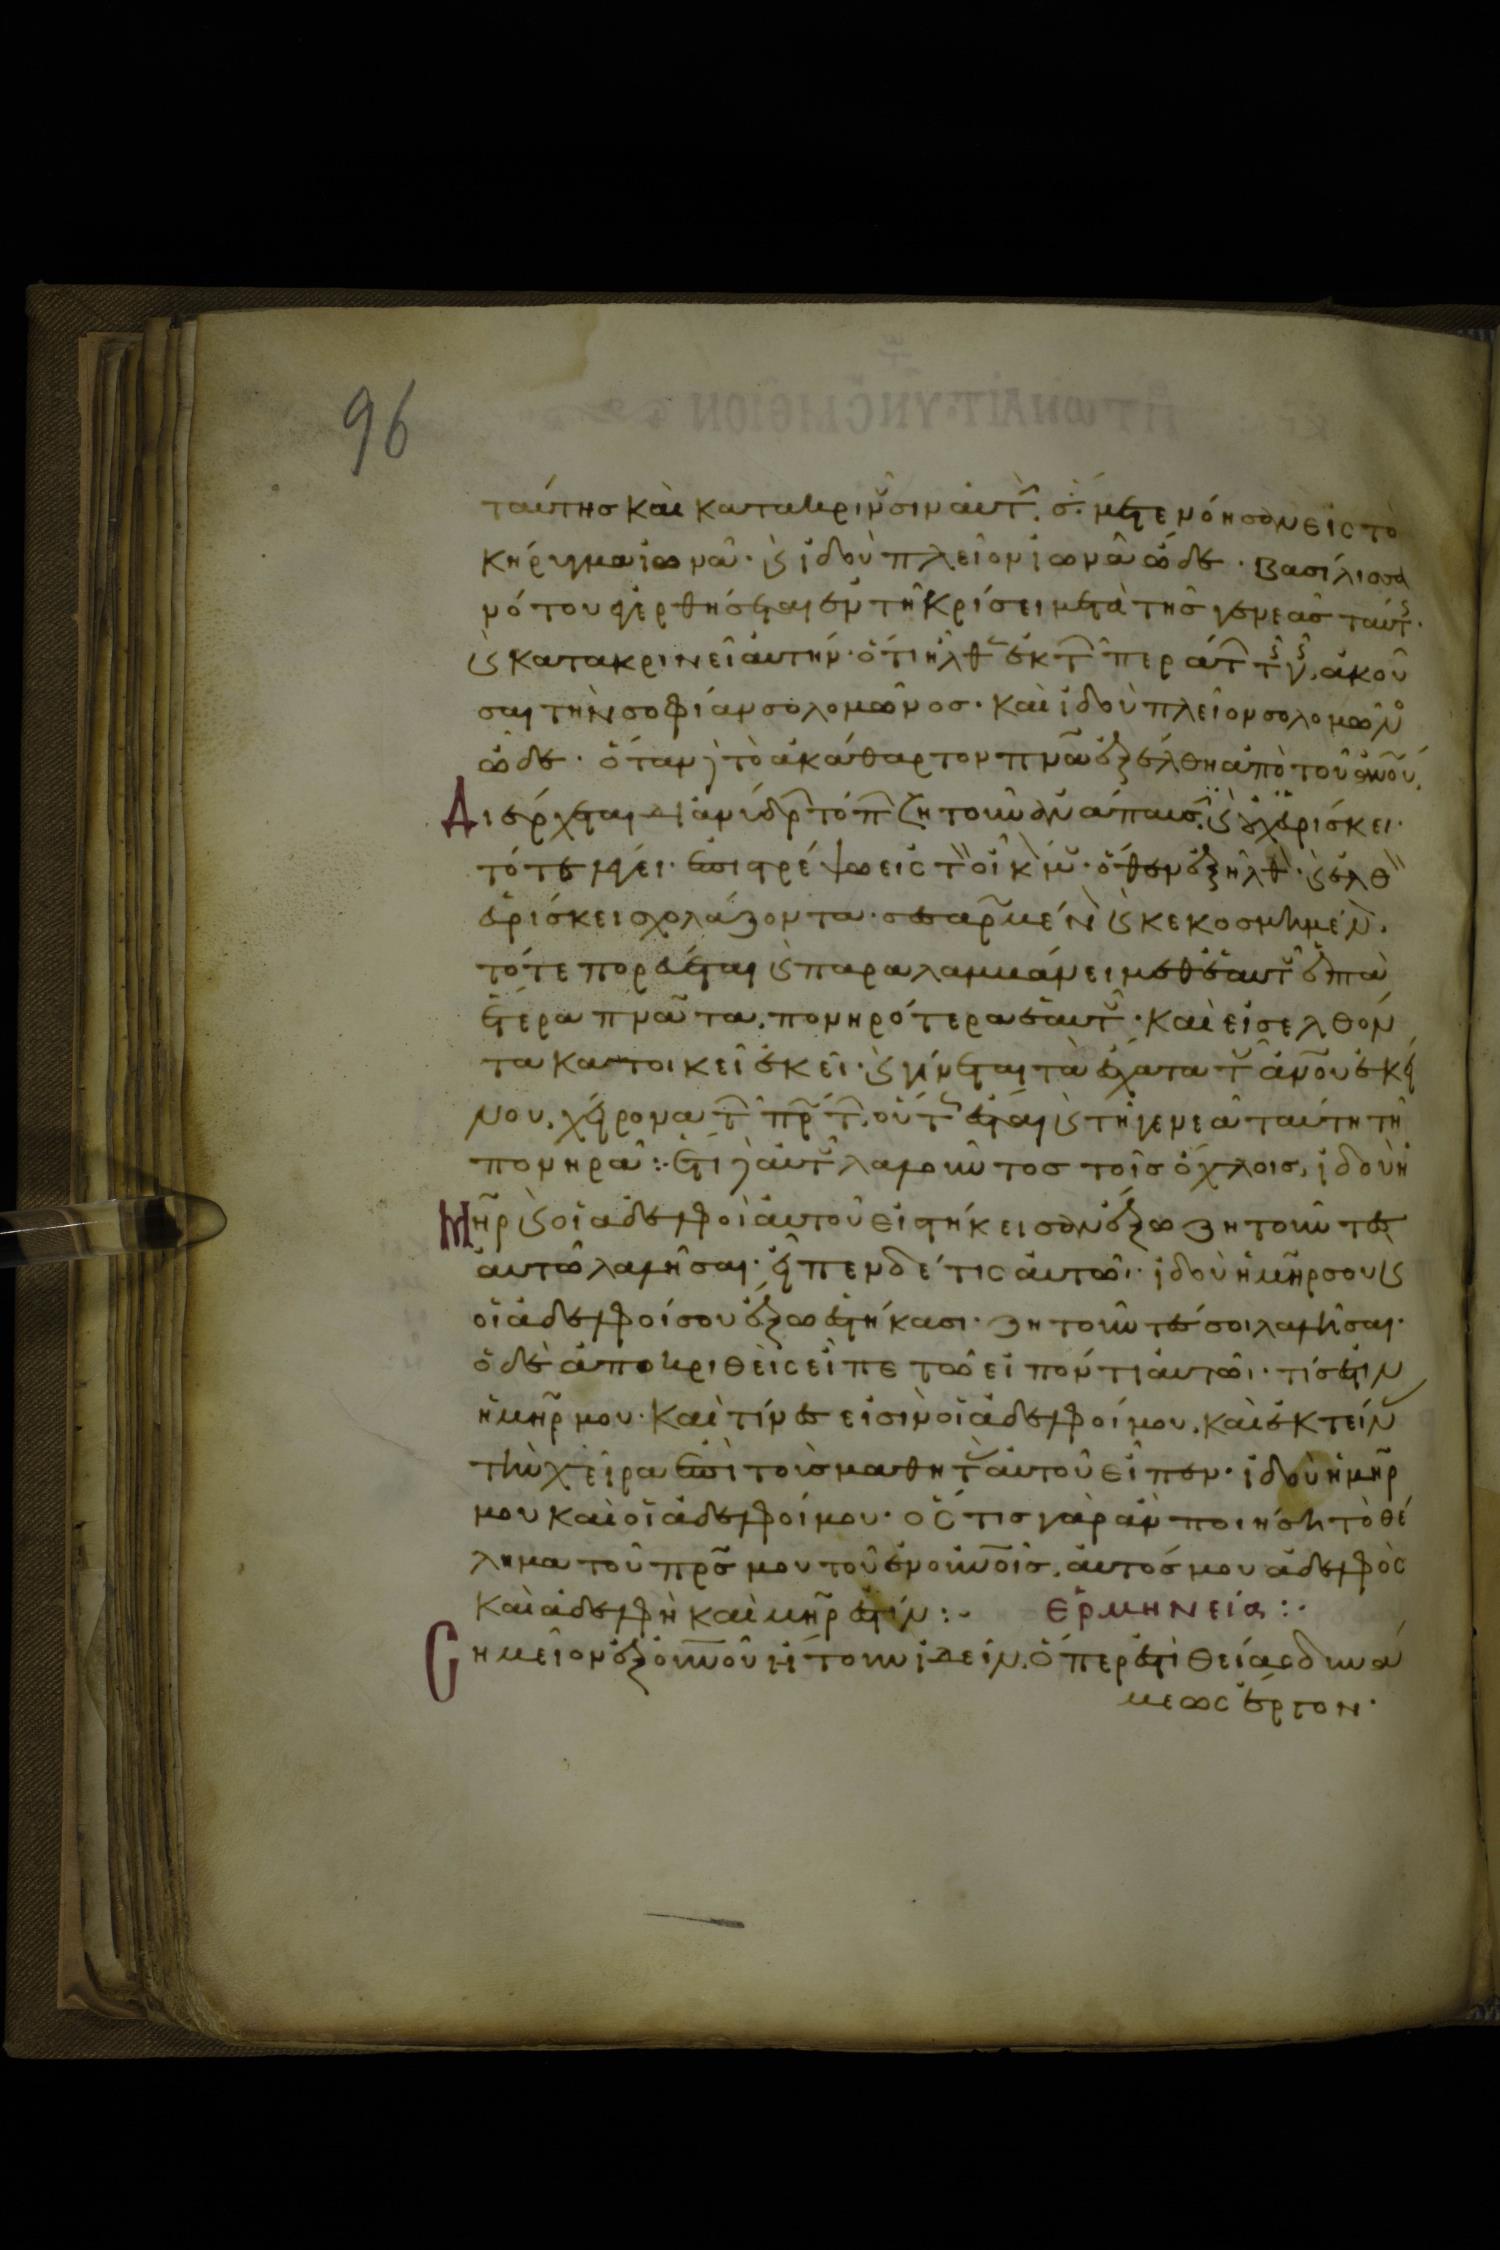 96
ταύτης καὶ κατακρινοῦσιν αὐτ· ὅτι μετενόησαν εἰς τὸ
κήρυγμα ἰωνᾶ· ϗ ἰδοὺ πλεῖον ἰωνᾶ ὧδε · βασίλισσα
νότου ἐγερθήσεται ἐν τῆ κρίσει μετὰ τῆς γενεᾶς ταύτ·
ϗ κατακρινεῖ αὐτήν· ὅτι ἦλθ ἐκ τ περάτ τ γ, ἀκοῦ
σαι τὴν σοφίαν σολομῶνος · καὶ ἰδοὺ πλεῖον σολομῶν
ὧδε · ὅταν τὸ ἀκάθαρτον πνᾶ ἐξέλθη ἀπὸ τοῦ ἀνοῦ,
Διέρχεται δι ἀνύδρ τόπ ζητοῦν ἀνάπαυσ, ϗ οὐχ εὑρίσκει·
τότε λέγει· ἐπιστρέψω εἰς τ οἶκ μου· ὅθεν ἐξῆλθ · ϗ ἐλθ
εὑρίσκει σχολάζοντα · σεσαρωμέν ϗ κεκοσμημέν.
τότε πορεύεται ϗ παραλαμβάνει μεθ ἑαυτοῦ ἑπτὰ
ἕτερα πνᾶτα, πονηρότερα ἑαυτοῦ · καὶ εἰσελθόν
τα κατοικεῖ ἐκεῖ· ϗ γίνεται τὰ ἔσχατα τοῦ ἀνοῦ ἐκεί
νου, χείρονα τ πρ τ, οὕτως ἔσται ϗ τῆ γενεᾶ ταύτη τῆ
πονηρᾶ :· ἔτι αὐτοῦ λαλοῦντος τοῖς ὄχλοις, ἰδοὺ ἡ
Μηρ ϗ οἱ ἀδελφοὶ αὐτοῦ εἱστήκεισαν ἔξω ζητοῦντες
αὐτῶ λαλῆσαι· εἶπεν δέ τις αὐτῶ· ἰδοὺ ἡ μηρ σου ϗ
οἱ ἀδελφοί σου ἔξω ἑστήκασι· ζητοῦντές σοι λαλῆσαι·
ὁ δὲ ἀποκριθεὶς εἶπε τῶ εἰπόντι αὐτῶ· τίς ἐστιν
ἡ μηρ μου · καὶ τίνες εἰσὶν οἱ ἀδελφοί μου, καὶ ἐκτείν
τὴν χεῖρα ἐπὶ τοὺς μαθητὰς αὐτοῦ εἶπεν · ἰδοὺ ἡ μηρ
μου καὶ οἱ ἀδελφοί μου · ὅςτις γὰρ ἂν ποιήση τὸ θέ
λημα τοῦ πρς μου τοῦ ἐν οὐνοῖς, αὐτός μου ἀδελφὸς
καὶ ἀδελφὴ καὶ μηρ ἐστίν :· ἑρμηνεία :·
Σημεῖον ἐξ οὐνοῦ ἐζήτουν ἰδεῖν, ὅπερ ἐστὶ θείας δυνά
μεως ἔργον·